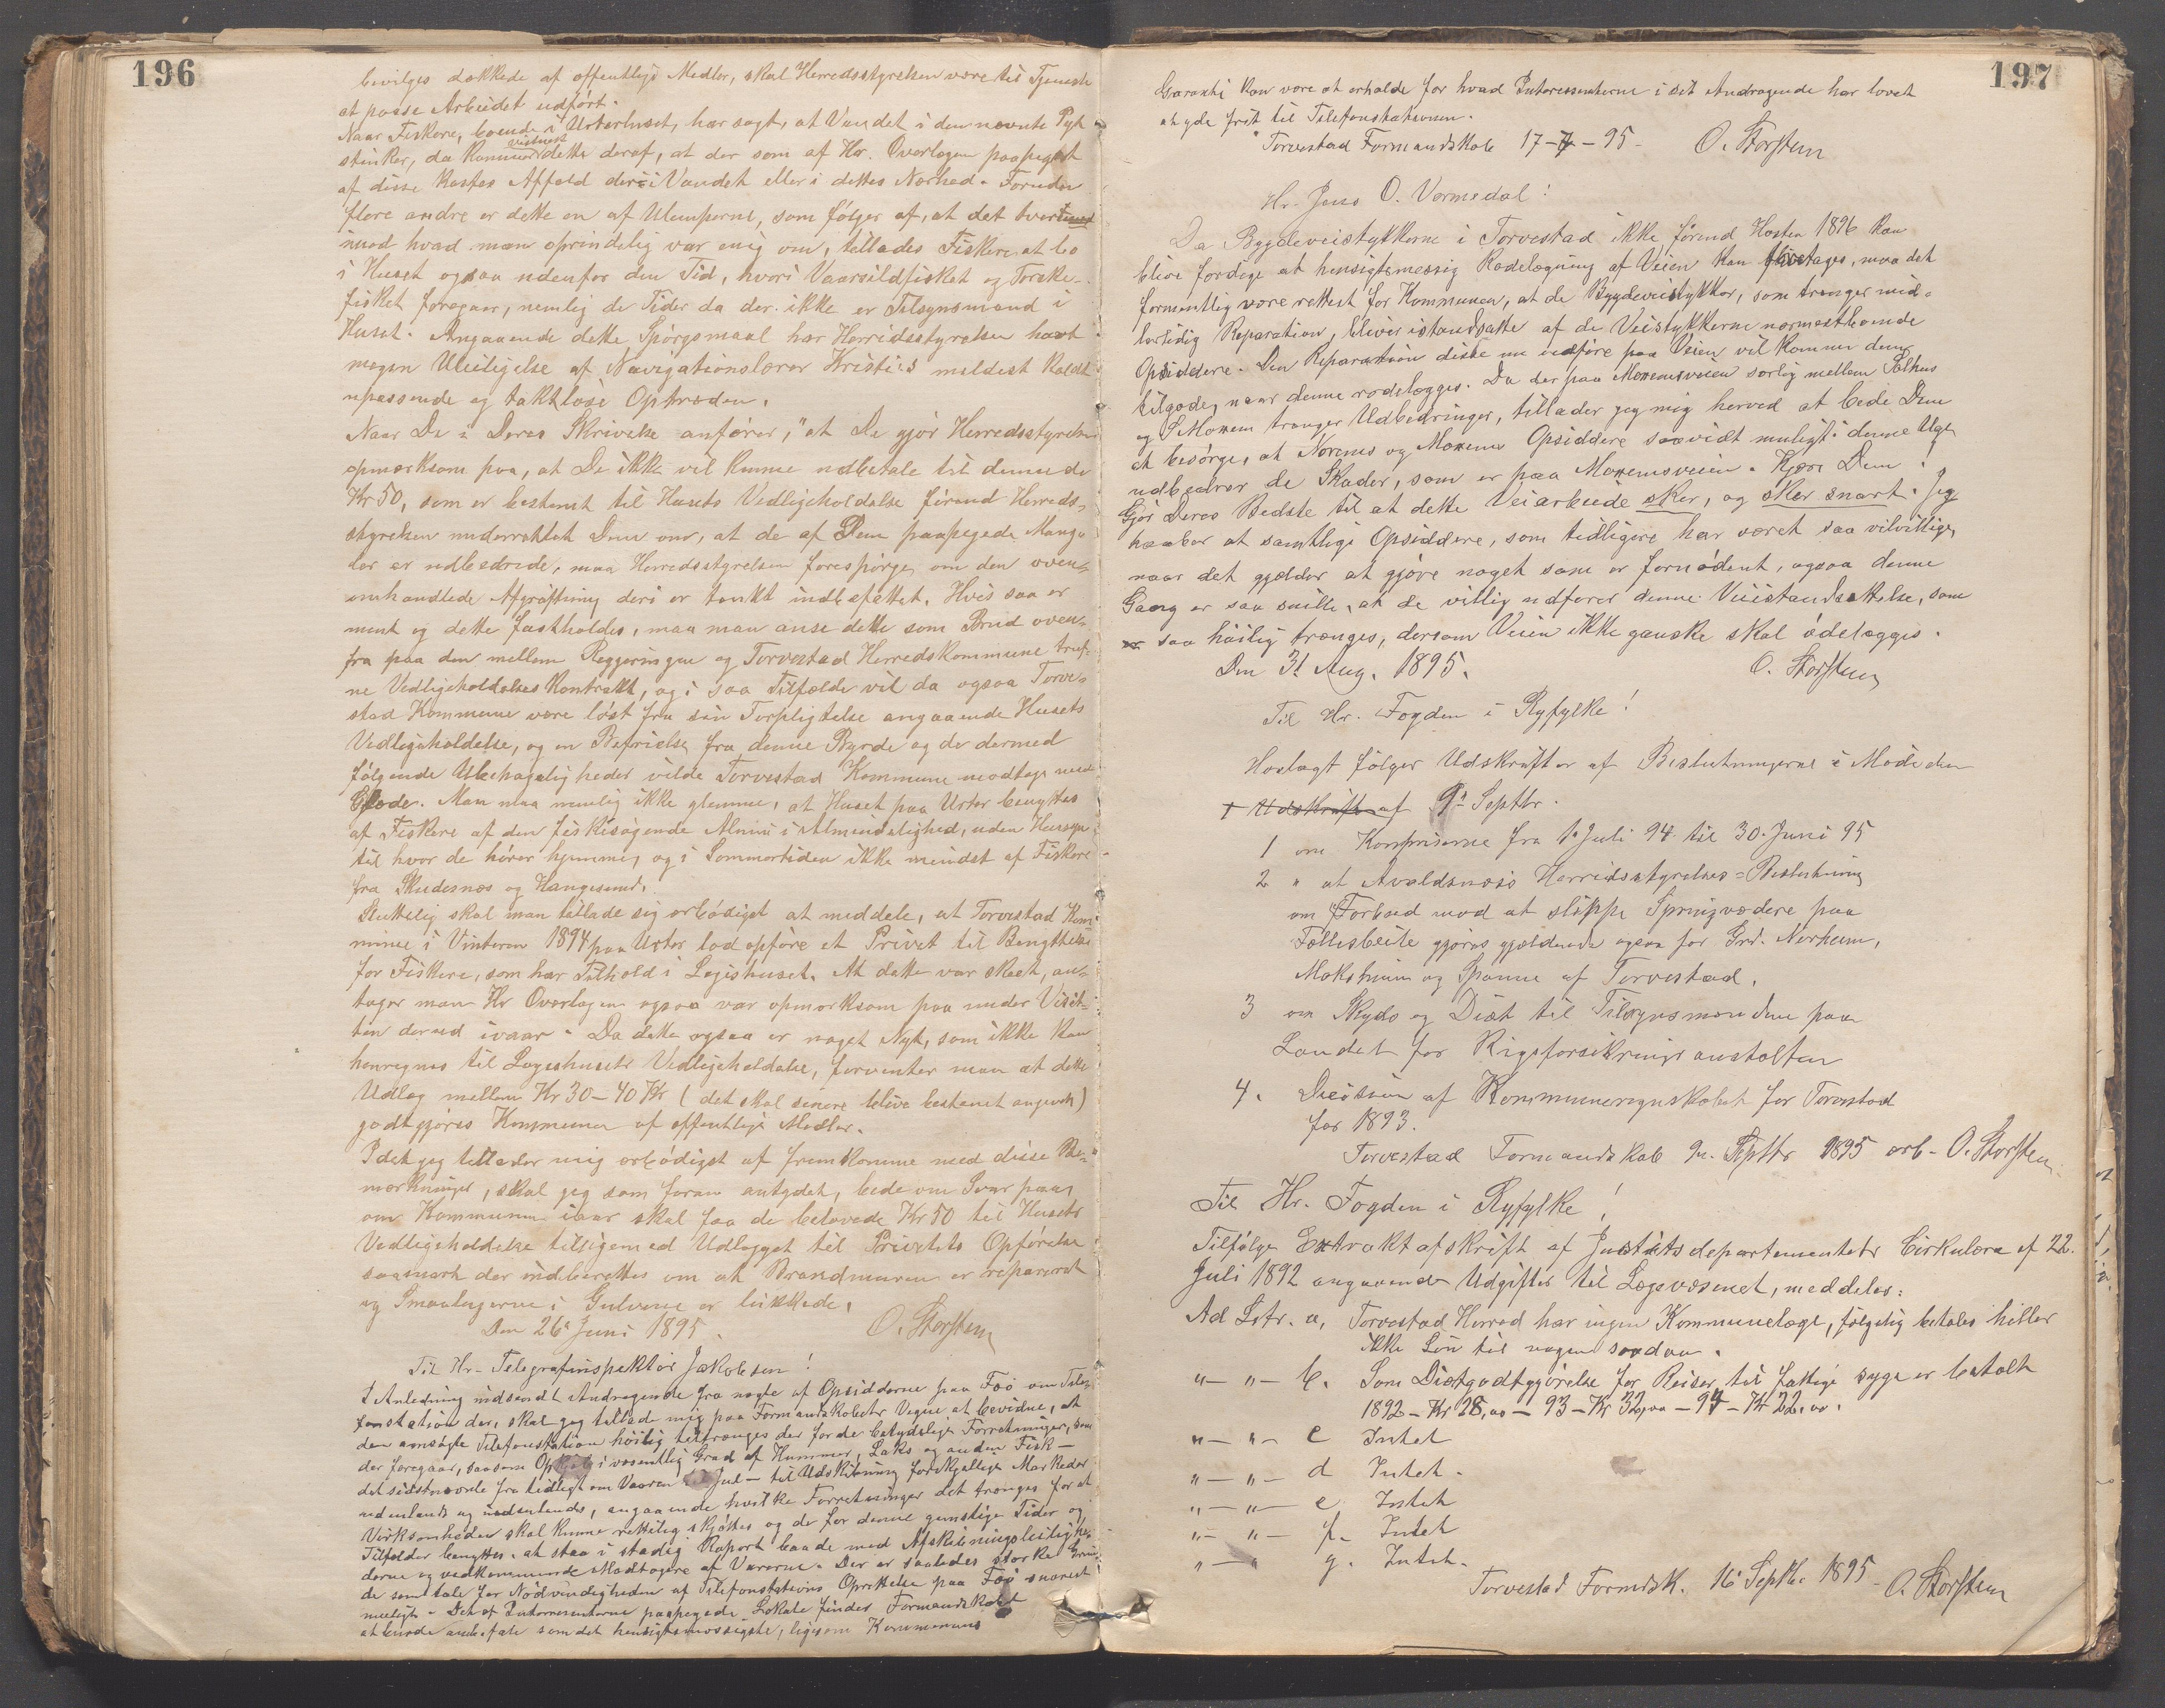 196
bevilges dækkede af offentlige Midler, skal Herredsstyrelsen være til Tjeneste
at passe Arbeidet udført.
Naar Fiskere, boende i Urterhuset, har sagt, at Vandet i den nævnte Pyt
stinker, da kommer vistnok dette deraf, at der som af Hr. Overlægen paapeget
af disse kastes Affald deri i Vandet eller i dettes Nærhed. Foruden
flere andre er dette en af Ulemperne, som følger af, at det tvert
imod hvad man oprindelig var enig om, tillades Fiskere at bo
i Huset ogsaa udenfor den Tid, hvori Vaarsildfisket og Torske-
fisket foregaar, nemlig de Tider da der ikke er Tilsynsmand i
Huset. Angaaende dette Spørgsmaal har Herredsstyrelsen havt
megen Uleiligelse af Navigationslærer Kristies meldest kaldt
upassende og taktløse Optræden.
Naar De i Deres Skrivelse anfører, "at De gjør Herredsstyrelsen
opmærksom paa, at De ikke vil kunne udbetale til denne de
Kr 50, som er bestemt til Husets Vedligeholdelse førend Herreds-
styrelsen underrettet Dem om, at de af Dem paapegede Mang-
ler er udbedrede, maa Herredsstyrelsen forespørge, om den oven-
omhandlede Afgrøftning deri er tænkt indbefattet. Hvis saa er
ment og dette fastholdes, maa man anse dette som Brud oven-
fra paa den mellem Reggeringen og Torvestad Herredskommune truf-
ne Vedligeholdelseskontrakt, og i saa Tilfælde vil da ogsaa Torve-
stad Kommune være løst fra sin Forpligtelse angaaende Husets
Vedligeholdelse, og en Befrielse fra denne Byrde og de dermed
følgende Ubehageligheder vilde Torvestad Kommune modtage med
Glæde. Man maa nemlig ikke glemme, at Huset paa Urter benyttes
af Fiskere af den fiskesøgende Almue i Almindelighed, uden Hensyn
til hvor de hører hjemme, og i Sommertiden ikke mindst af Fiskere
fra Skudesnes og Haugesund.
Sluttelig skal man tillade sig ærbødigst at meddele, at Torvestad Kom-
mune i Vinteren 1894 paa Urter lod opføre et Privet til Benyttelse
for Fiskere, som har Tilhold i Logishuset. At dette var skeet, an-
tager man Hr Overlægen ogsaa var opmerksom paa under Visit-
ten derud ivaar. Da dette ogsaa er noget Nyt, som ikke kan
henregnes til Logishusets Vedligeholdelse, forventer man at dette
Udlæg mellem Kr 30 - 40 Kr (det skal senere blive bestemt angivet)
godtgjøres Kommunen af offentlige Midler.
Idet jeg tillader mig ærbødigst at fremkomme med disse Be-
mærkninger, skal jeg som foran antydet, bede om Svar paa,
om Kommunen iaar skal faa de belovede Kr 50 til Husets
Vedligeholdelse tilligemed Udlægget til Privetets Opførelse
saasnart der indberettes om at Brandmuren er repareret
og Smaalugerne i Gulvene er lukkede.
Den 26 Juni 1895. O. Storsten
Til Hr. Telegrafinspektør Jakobsen!
I Anledning indsendt Andragende fra nogle af Opsidderne paa Feø om Tele-
fonstation der, skal jeg tillade mig paa Formandskabets Vegne at bevidne, at
den ansøgte Telefonstation høilig tiltrænges der for de betydelige Forretninger, som
der foregaar, saasom Opkjøb i væsentlig Grad af Hummer, Laks og anden Fisk —
det sidstnævnte fra tidligt om Vaaren til Jul — til Udskibning forskjellige Markeder
udenlands og indenlandes, angaaende hvilke Forretninger det trænges for at
Virksomheden skal kunne rettelig skjøttes og de for denne gunstige Tider og
Tilfælder benyttes, at staa i stadig Raport baade med Afskibningsleilighe-
derne og vedkommende Modtagere af Varerne. Der er saaledes stærke Grun-
de som tale for Nødvendigheden af Telefonstations Oprettelse paa Feø snarest
muligt. Det af Interessenterne paapegede Lokale finder Formandskabet
at burde anbefale som det hensigtsmæssigste, ligesom Kommunens
197
Garanti kan være at erholde for hvad Interessenterne i sit Andragende har lovet
at yde frit til Telefonstationen.
Torvestad Formandskab 17-7-95. O. Storsten
Hr. Jens O. Vormedal!
Da Bygdeveistykkerne i Torvestad ikke førend Høsten 1896 kan
blive færdige at hensigtsmessig Rodelægning af Veien kan foretages, maa det
formentlig være rettest for Kommunen, at de Bygdeveistykker, som trænger mid-
lertidig Reparation, bliver istandsatte af de Veistykkerne nærmestboende
Opsiddere. Den Reparation disse nu udføre paa Veien vil komme dem
tilgode, naar denne rodelægges. Da der paa Moxnesveien særlig mellem Salhus
og S Moxnes trænger Udbedringer, tillader jeg mig herved at bede Dem
at besørge, at Norenes og Moxenes Opsiddere saavidt muligt i denne Uge
udbedrer de Skader, som er paa Moxenesveien. Kjære Dem!
Gjør Deres Bedste til at dette Veiarbeide sker, og sker snart. Jeg
haaber at samtlige Opsiddere, som tidligere har været saa vilvillige,
naar det gjælder at gjøre noget som er fornødent, ogsaa denne
Gang er saa snille, at de villig udfører denne Veiistandsættelse, som
er saa høilig trænges, dersom Veien ikke ganske skal ødelægges.
Den 31 Aug. 1895. O. Storsten
Til Hr. Fogden i Ryfylke!
Hoslagt følger Udskrifter af Beslutningerne i Møde den
+ Udskrifter af 9de Septbr.
1 om Kornpriserne fra 1. Juli 94 til 30. Juni 95
2 " at Avaldsnæs Herredsstyrelses=Beslutning
om Forbud mod at slippe Springvædere paa
Fællesbeite gjøres gjældende ogsaa for Grd. Norheim,
Moksheim og Spanne af Torvestad.
3 om Skyds og Diæt til Tilsynsmændene paa
Landet for Rigsforsikringsanstalten
4. Decision af Kommuneregnskabet for Torvestad
for 1893.
Torvestad Formandskab 9n. Septbr 1895 ærb. O. Storsten
Til Hr. Fogden i Ryfylke!
Tilfølge Extraktafskrift af Justitsdepartementets Cirkulære af 22.
Juli 1892 angaaende Udgifter til Lægevæsenet, meddeles:
Ad Litr. a, Torvestad Herred har ingen Kommunelæge, følgelig betales heller
ikke Løn til nogen saadan.
" — " — b. Som Diætgodtgjørelse for Reiser til fattige syge er betalt
1892 - Kr 28,00 — 93 - Kr 32,00 — 94 - Kr 22,00.
" — " — c Intet
" — " — d Intet.
" — " — e Intet
" — " — f. Intet
" — " g. Intet.
Torvestad Formdsk. 16 Septbr 1895 O. Storsten